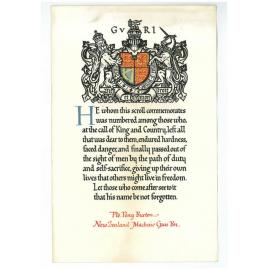 G V R I
HE whom this scroll commemorates
was numbered among those who,
at the call of King and Country, left all
that was dear to them, endured hardness,
faced danger, and finally passed out of
the sight of men by the path of duty
and self-sacrifice, giving up their own
lives that others might live in freedom.
Let those who come after see to it
that his name be not forgotten.
Pte. Percy Buxton
New Zealand Machine Gun Bn.